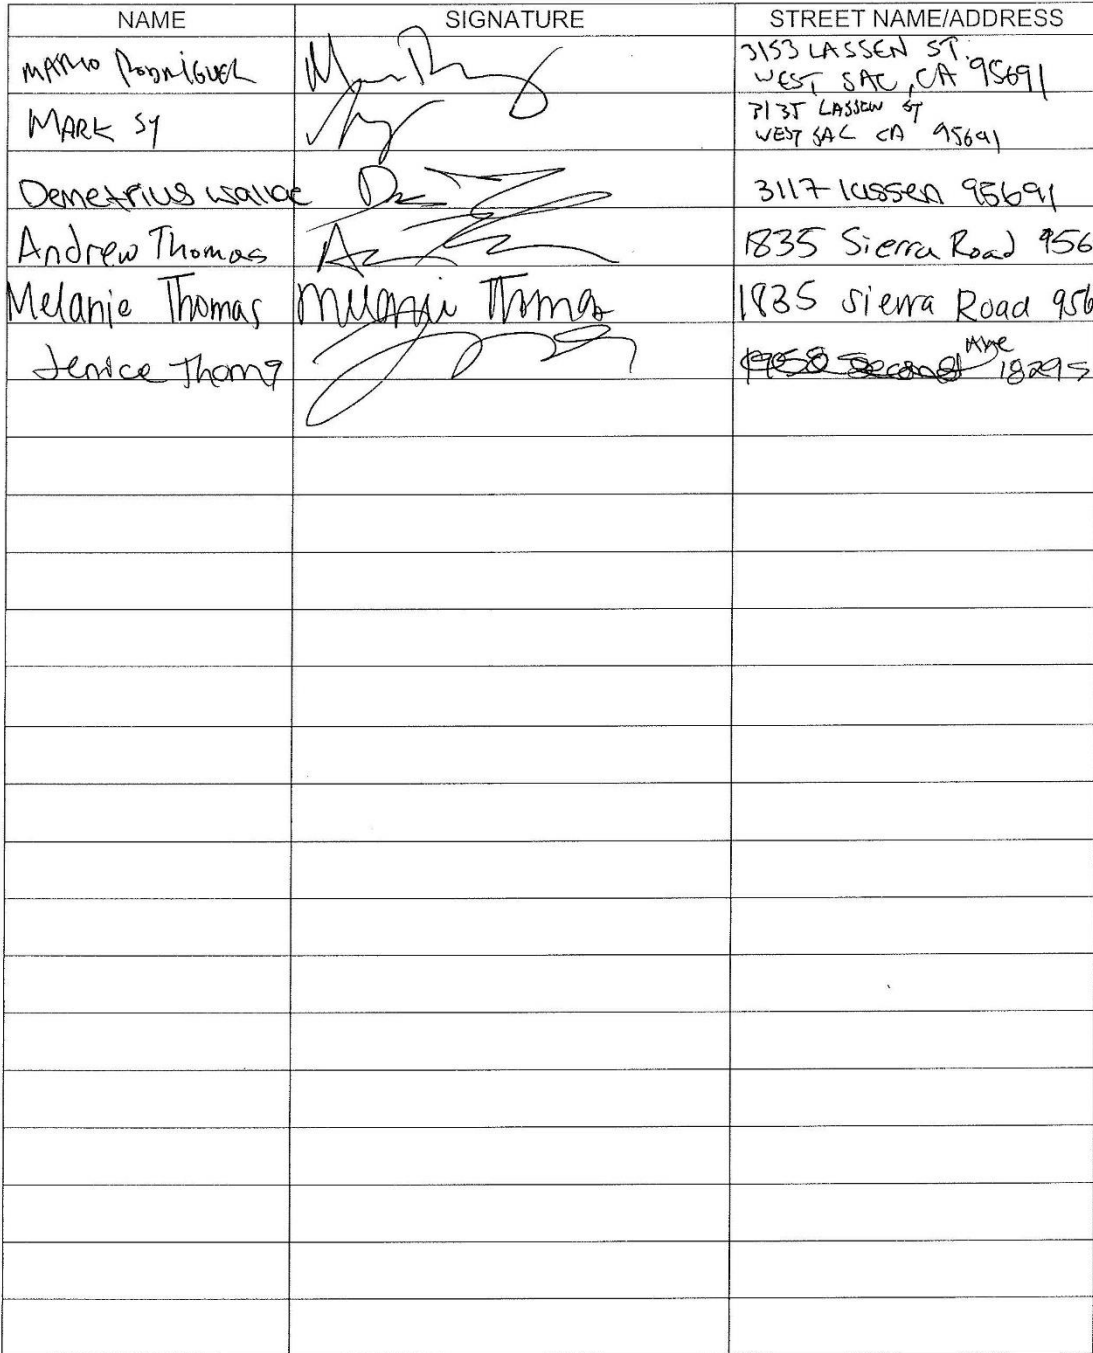 NAME SIGNATURE STREET NAME/ADDRESS
MARIO RODRIGUEZ 3153 LASSEN ST.
WEST SAC, CA 95691
MARK SY 3135 LASSEN ST
WEST SAC CA 95691
Demetrius Wallace 3117 lassen 95691
Andrew Thomas 1835 Sierra Road 956
Melanie Thomas Melanie Thomas 1835 Sierra Road 956
Jenice Ave
18295